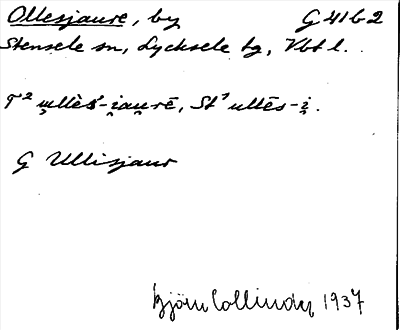 Ollesjaure, by G 41 b 2
Stensele sn, Lycksele tg, Vbt l.
T² ullès-i̯au̯rē, St¹ ullēs-i̯.
G Ullisjaur
Björn Collinder 1937